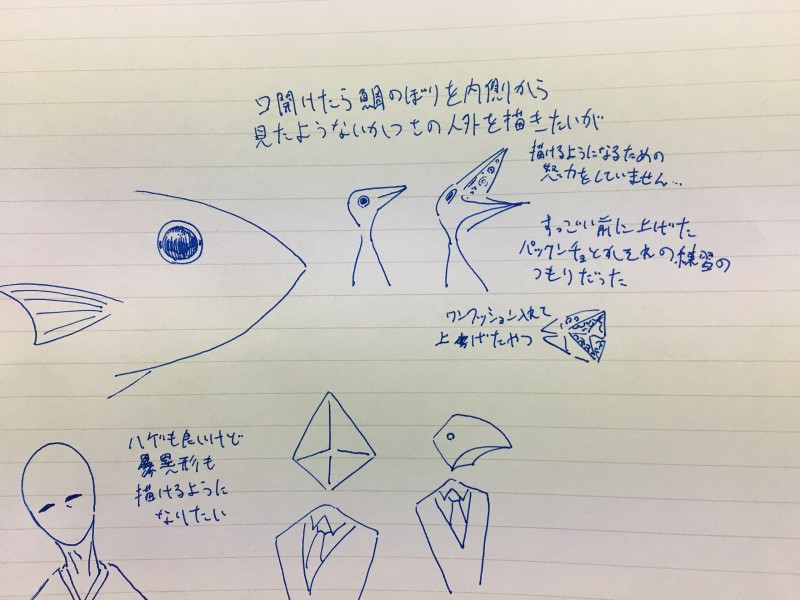 口開けたら鯛のぼりを内側から
見たようないかつさの人外を描きたいが
描けるようになるための
努力をしていません…
すっごい前に上げた
パックンチョとかもそれの練習の
つもりだった
ワンクッション入れて
上げたやつ
ハゲも良いけど
異形も
描けるように
なりたい